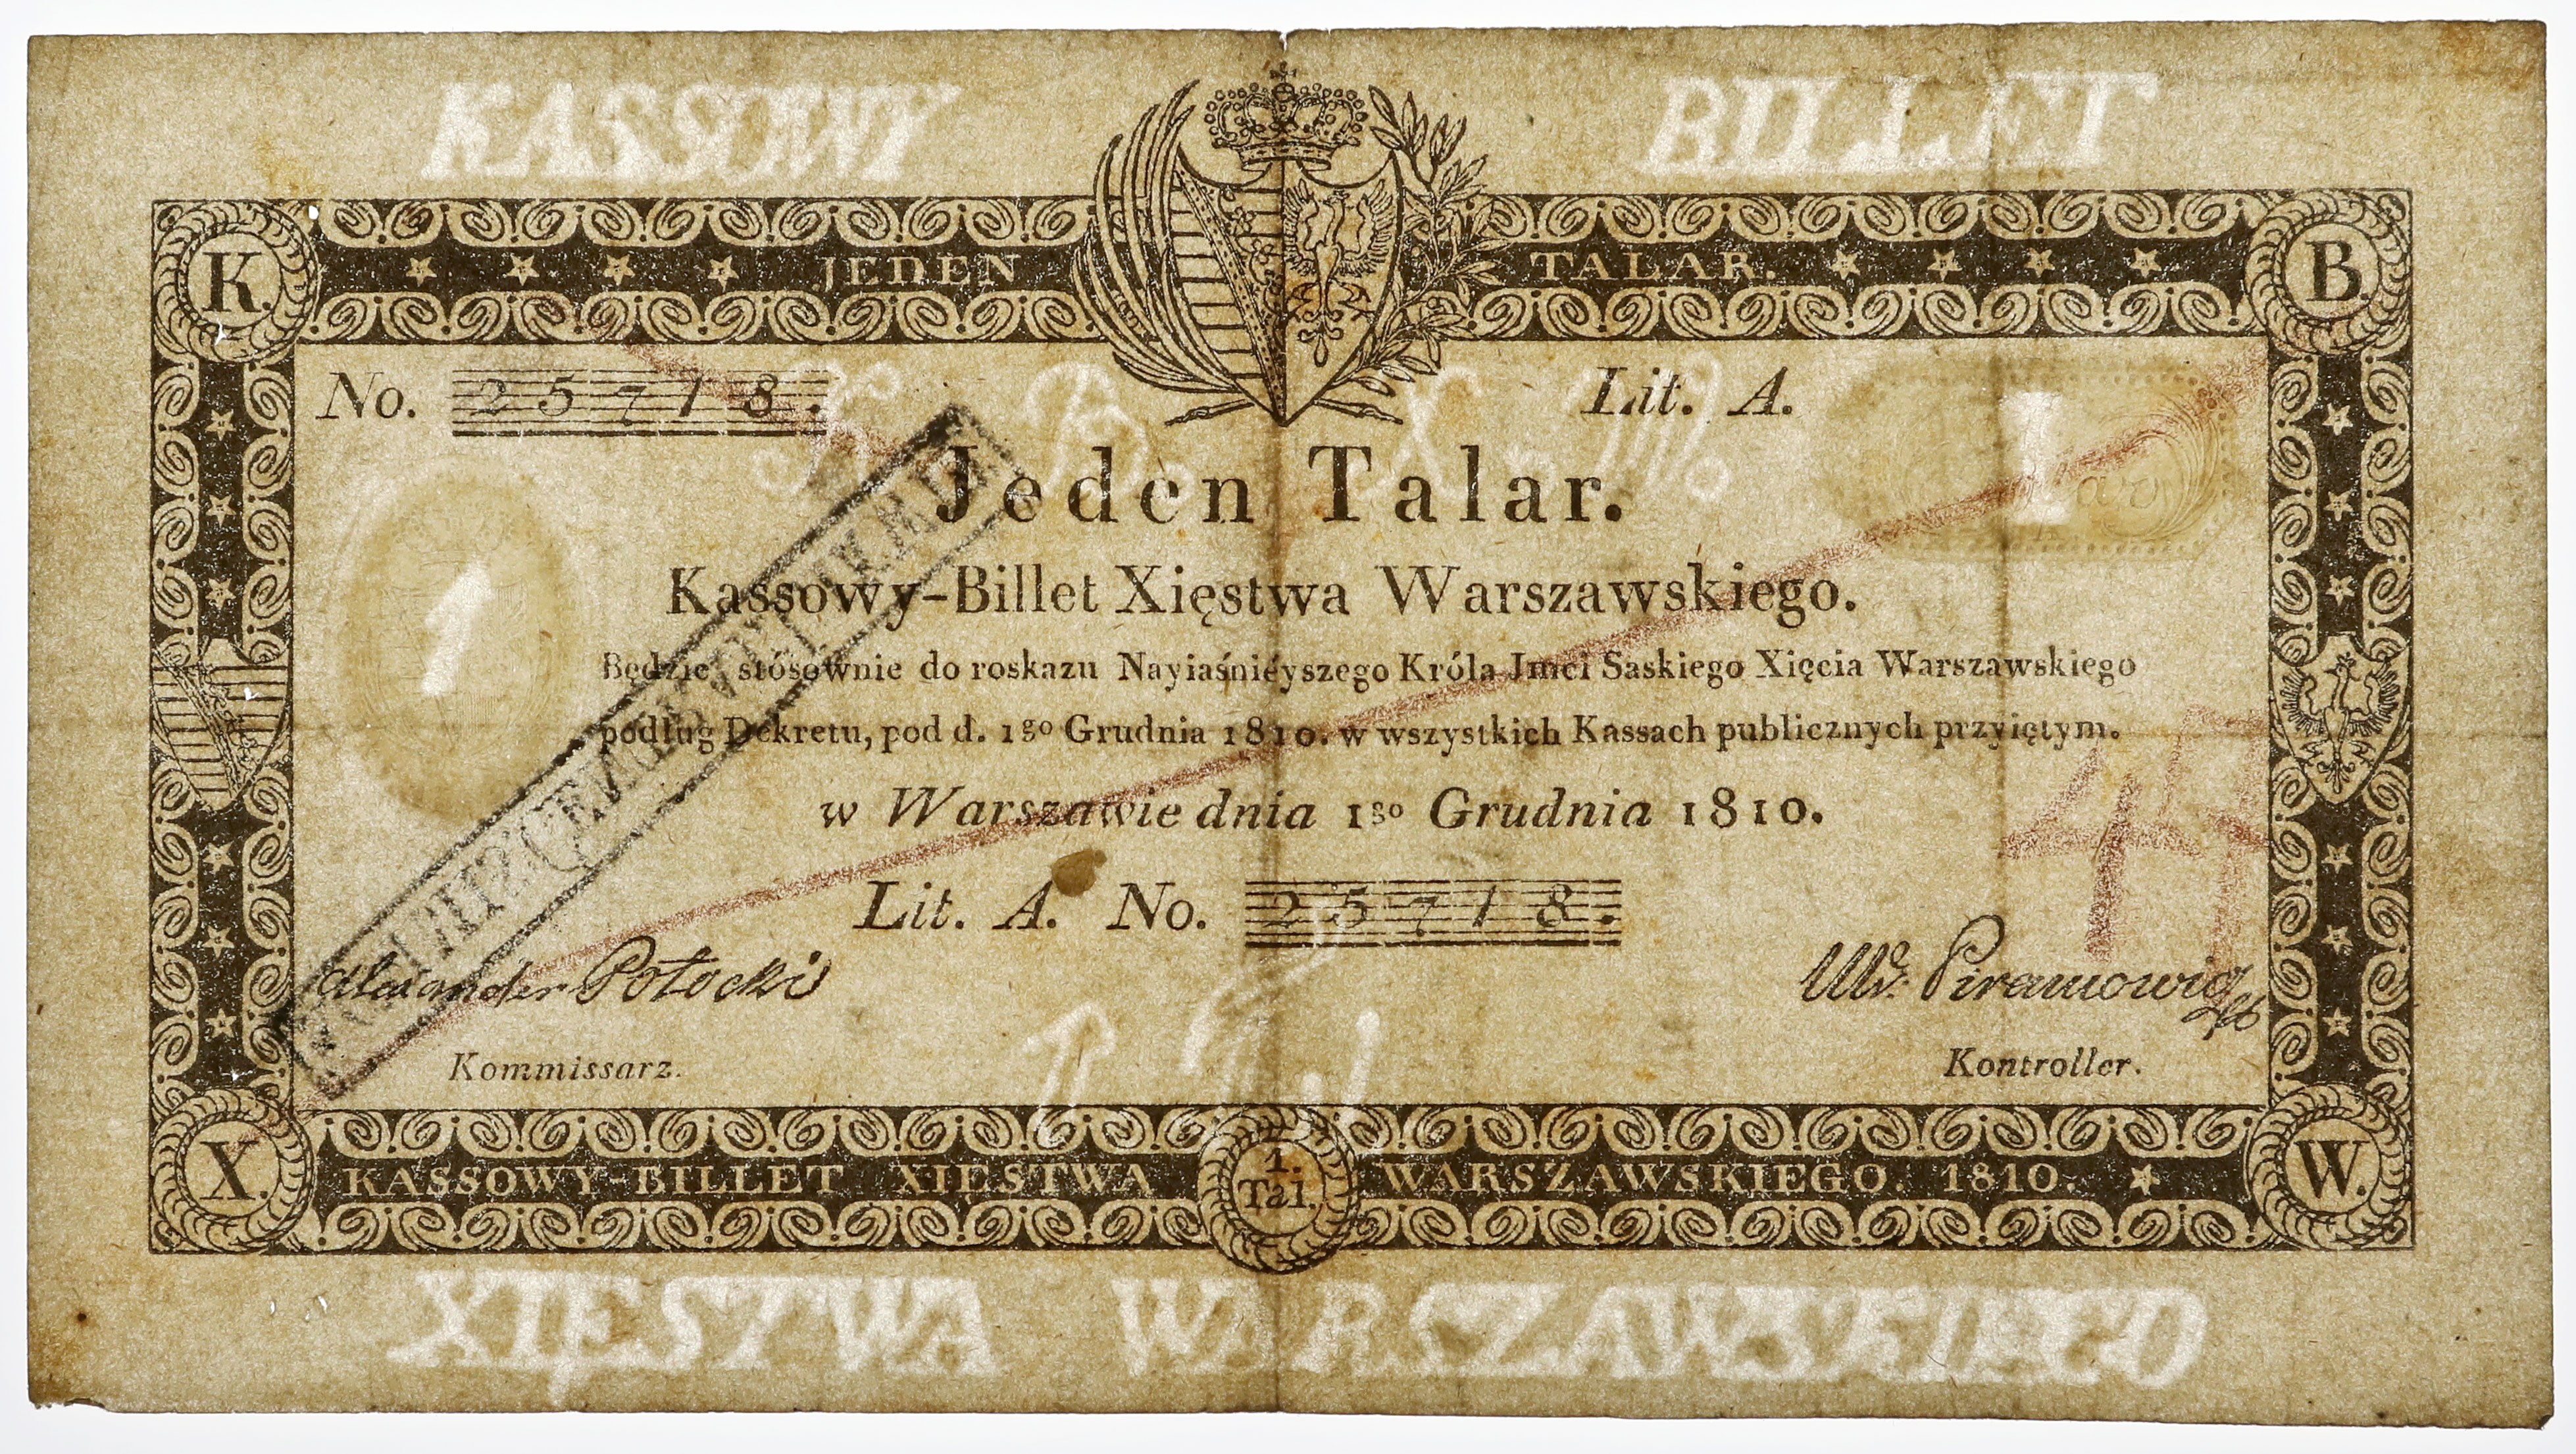 KASSOWY BILLET
K. JEDEN TALAR. B.
No. 25718. Lit. A.
K. B. X. W.
1
Jeden Talar.
1
Kassowy-Billet Xięstwa Warszawskiego.
Będzie stósownie do roskazu Nayiaśniéyszego Króla Jmci Saskiego Xięcia Warszawskiego
podług Dekretu, pod d. 1go Grudnia 1810. w wszystkich Kassach publicznych przyiętym.
w Warszawie dnia 1go Grudnia 1810.
Lit. A. No. 25718.
Alexander Potocki
Kommissarz.
Kontroller.
X. KASSOWY-BILLET XIĘSTWA 1. Tal. WARSZAWSKIEGO. 1810. W.
XIĘSTWA WARSZAWSKIEGO